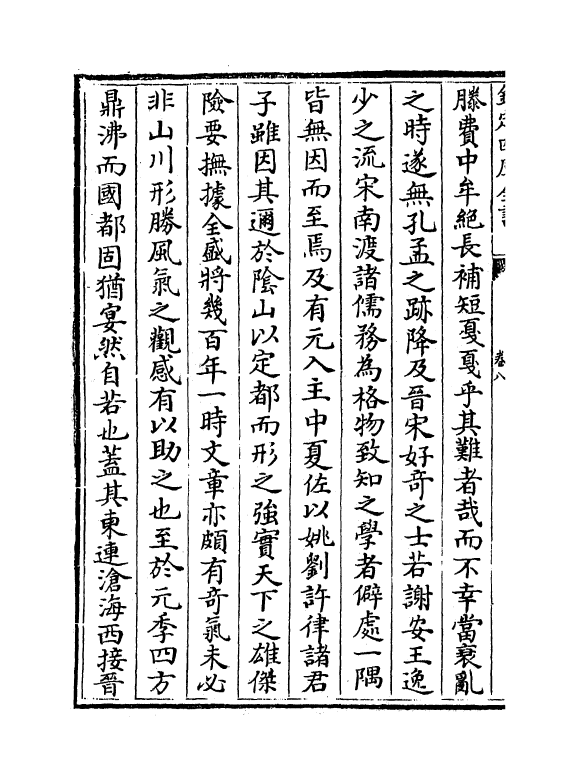 欽定四庫全書
卷八
滕費中牟絕長補短戞戞乎其難者哉而不幸當衰亂
之時遂無孔孟之跡降及晉宋好奇之士若謝安王逸
少之流宋南渡諸儒務為格物致知之學者僻處一隅
皆無因而至焉及有元入主中夏佐以姚劉許律諸君
子雖因其邇於陰山以定都而形之強實天下之雄傑
險要撫據全盛將幾百年一時文章亦頗有奇氣未必
非山川形勝風氣之觀感有以助之也至於元季四方
鼎沸而國都固猶宴然自若也蓋其東連滄海西接晉